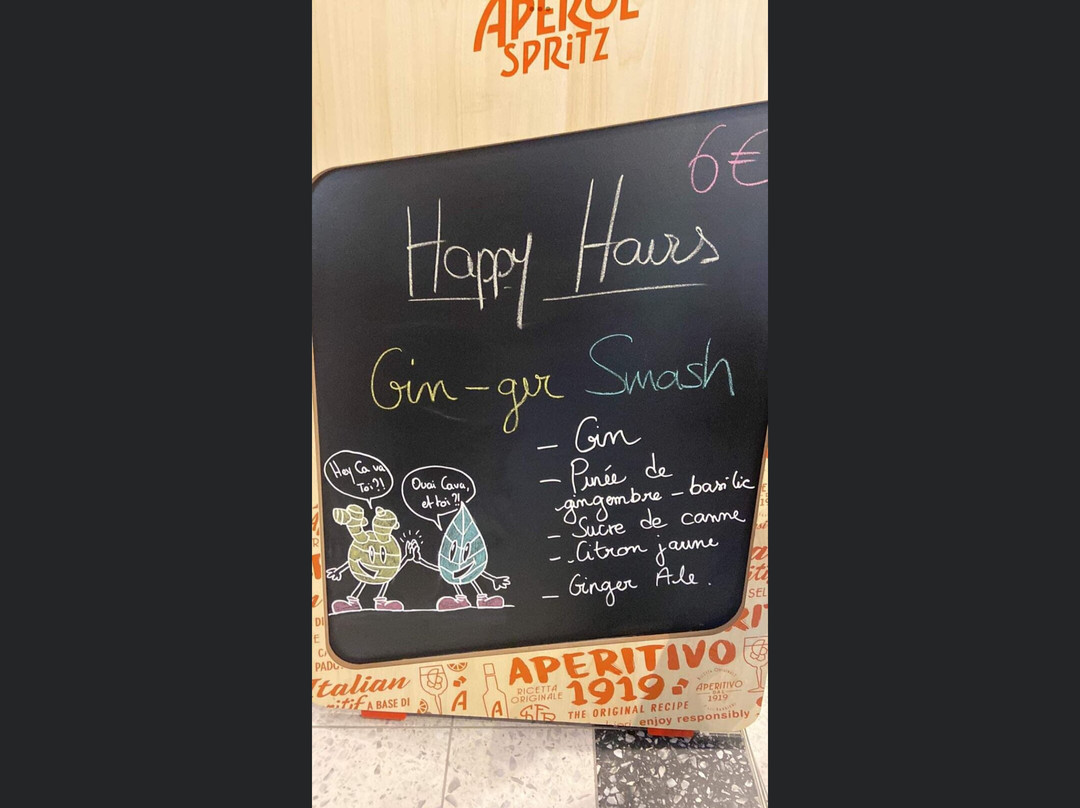 APEROL
SPRITZ
6€
Happy Hours
Gin-ger Smash
- Gin
- Purée de
gingembre - basilic
- Sucre de canne
- Citron jaune
- Ginger Ale.
Hey Ca va
Toi?!
Ouai Cava,
et toi?!
APERITIVO
1919
RICETTA
ORIGINALE
THE ORIGINAL RECIPE
enjoy responsibly
Italian
A BASE DI
A
APERITIVO
DAL
1919